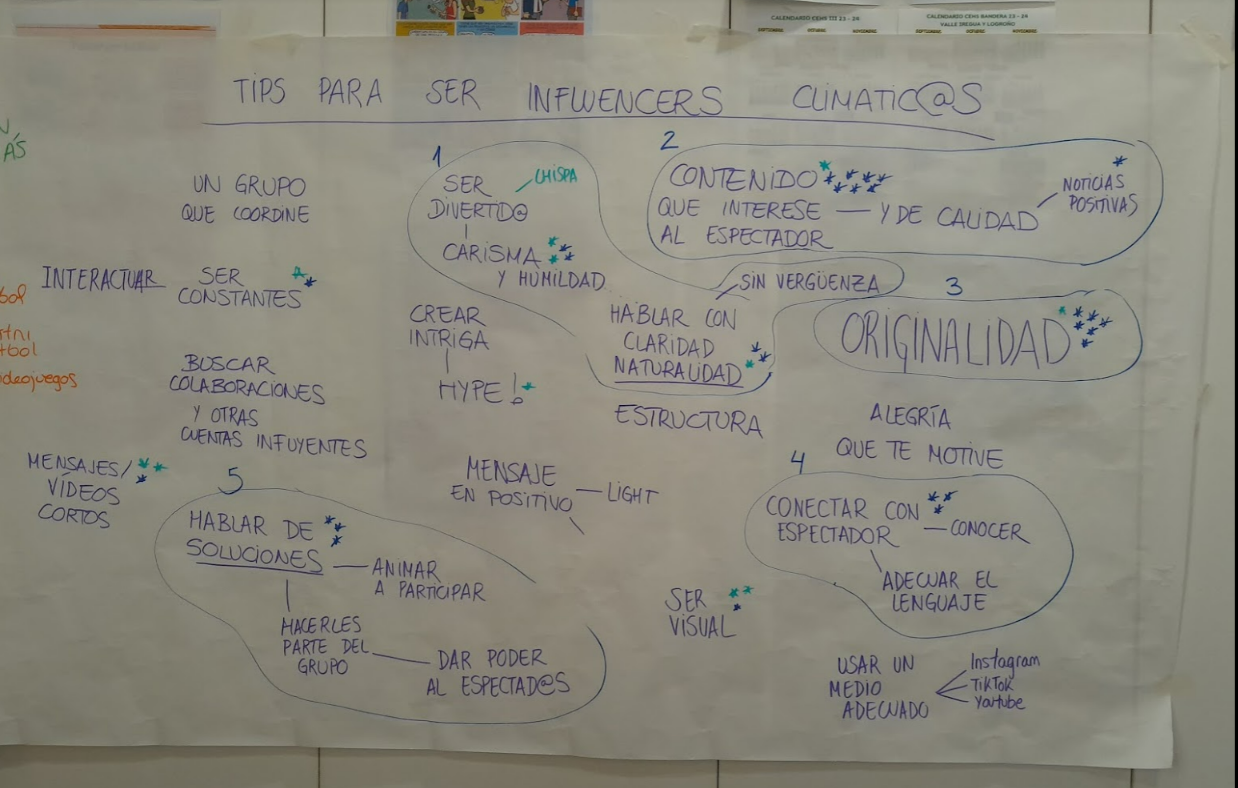 CALENDARIO CEHS III 23 - 24
CALENDARIO CEHS BANDERA 23 - 24
VALLE IREGUA Y LOGROÑO
SEPTIEMBRE OCTUBRE NOVIEMBRE
SEPTIEMBRE OCTUBRE NOVIEMBRE
TIPS PARA SER INFLUENCERS CLIMATIC@S
ÁS
UN GRUPO
QUE COORDINE
INTERACTUAR
SER
CONSTANTES
BUSCAR
COLABORACIONES
Y OTRAS
CUENTAS INFUYENTES
MENSAJES/
VÍDEOS
CORTOS
1
SER
DIVERTID@
CHISPA
CARISMA
Y HUMILDAD
HABLAR CON
CLARIDAD
NATURALIDAD
SIN VERGÜENZA
CREAR
INTRIGA
HYPE!
ESTRUCTURA
MENSAJE
EN POSITIVO
LIGHT
2
CONTENIDO
QUE INTERESE
AL ESPECTADOR
Y DE CALIDAD
NOTICIAS
POSITIVAS
3
ORIGINALIDAD
ALEGRÍA
QUE TE MOTIVE
4
CONECTAR CON
ESPECTADOR
CONOCER
ADECUAR EL
LENGUAJE
5
HABLAR DE
SOLUCIONES
ANIMAR
A PARTICIPAR
HACERLES
PARTE DEL
GRUPO
DAR PODER
AL ESPECTAD@S
SER
VISUAL
USAR UN
MEDIO
ADECUADO
Instagram
TikTok
Youtube
bol
tbol
ideojuegos